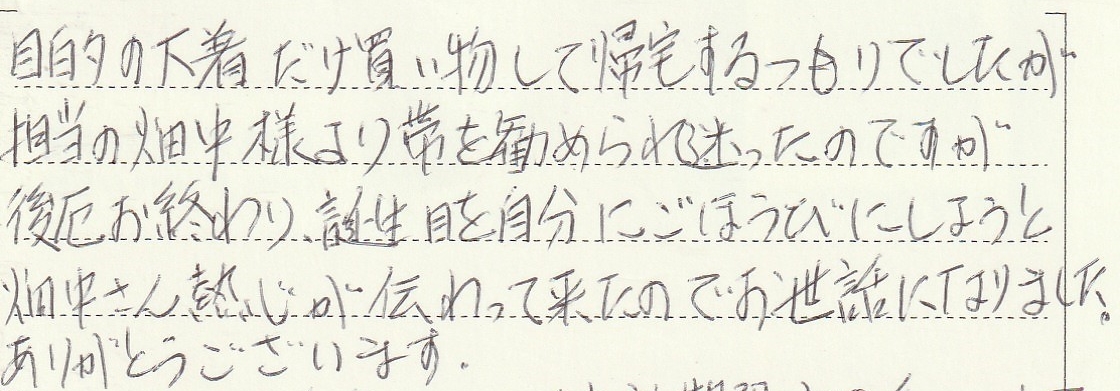 目的の下着だけ買い物して帰宅するつもりでしたが
担当の畑中様より帯を勧められ迷ったのですが
後厄お終わり、誕生日を自分にごほうびにしようと
畑中さん熱心じが伝わって来たのでお世話になりました。
ありがとうございます.